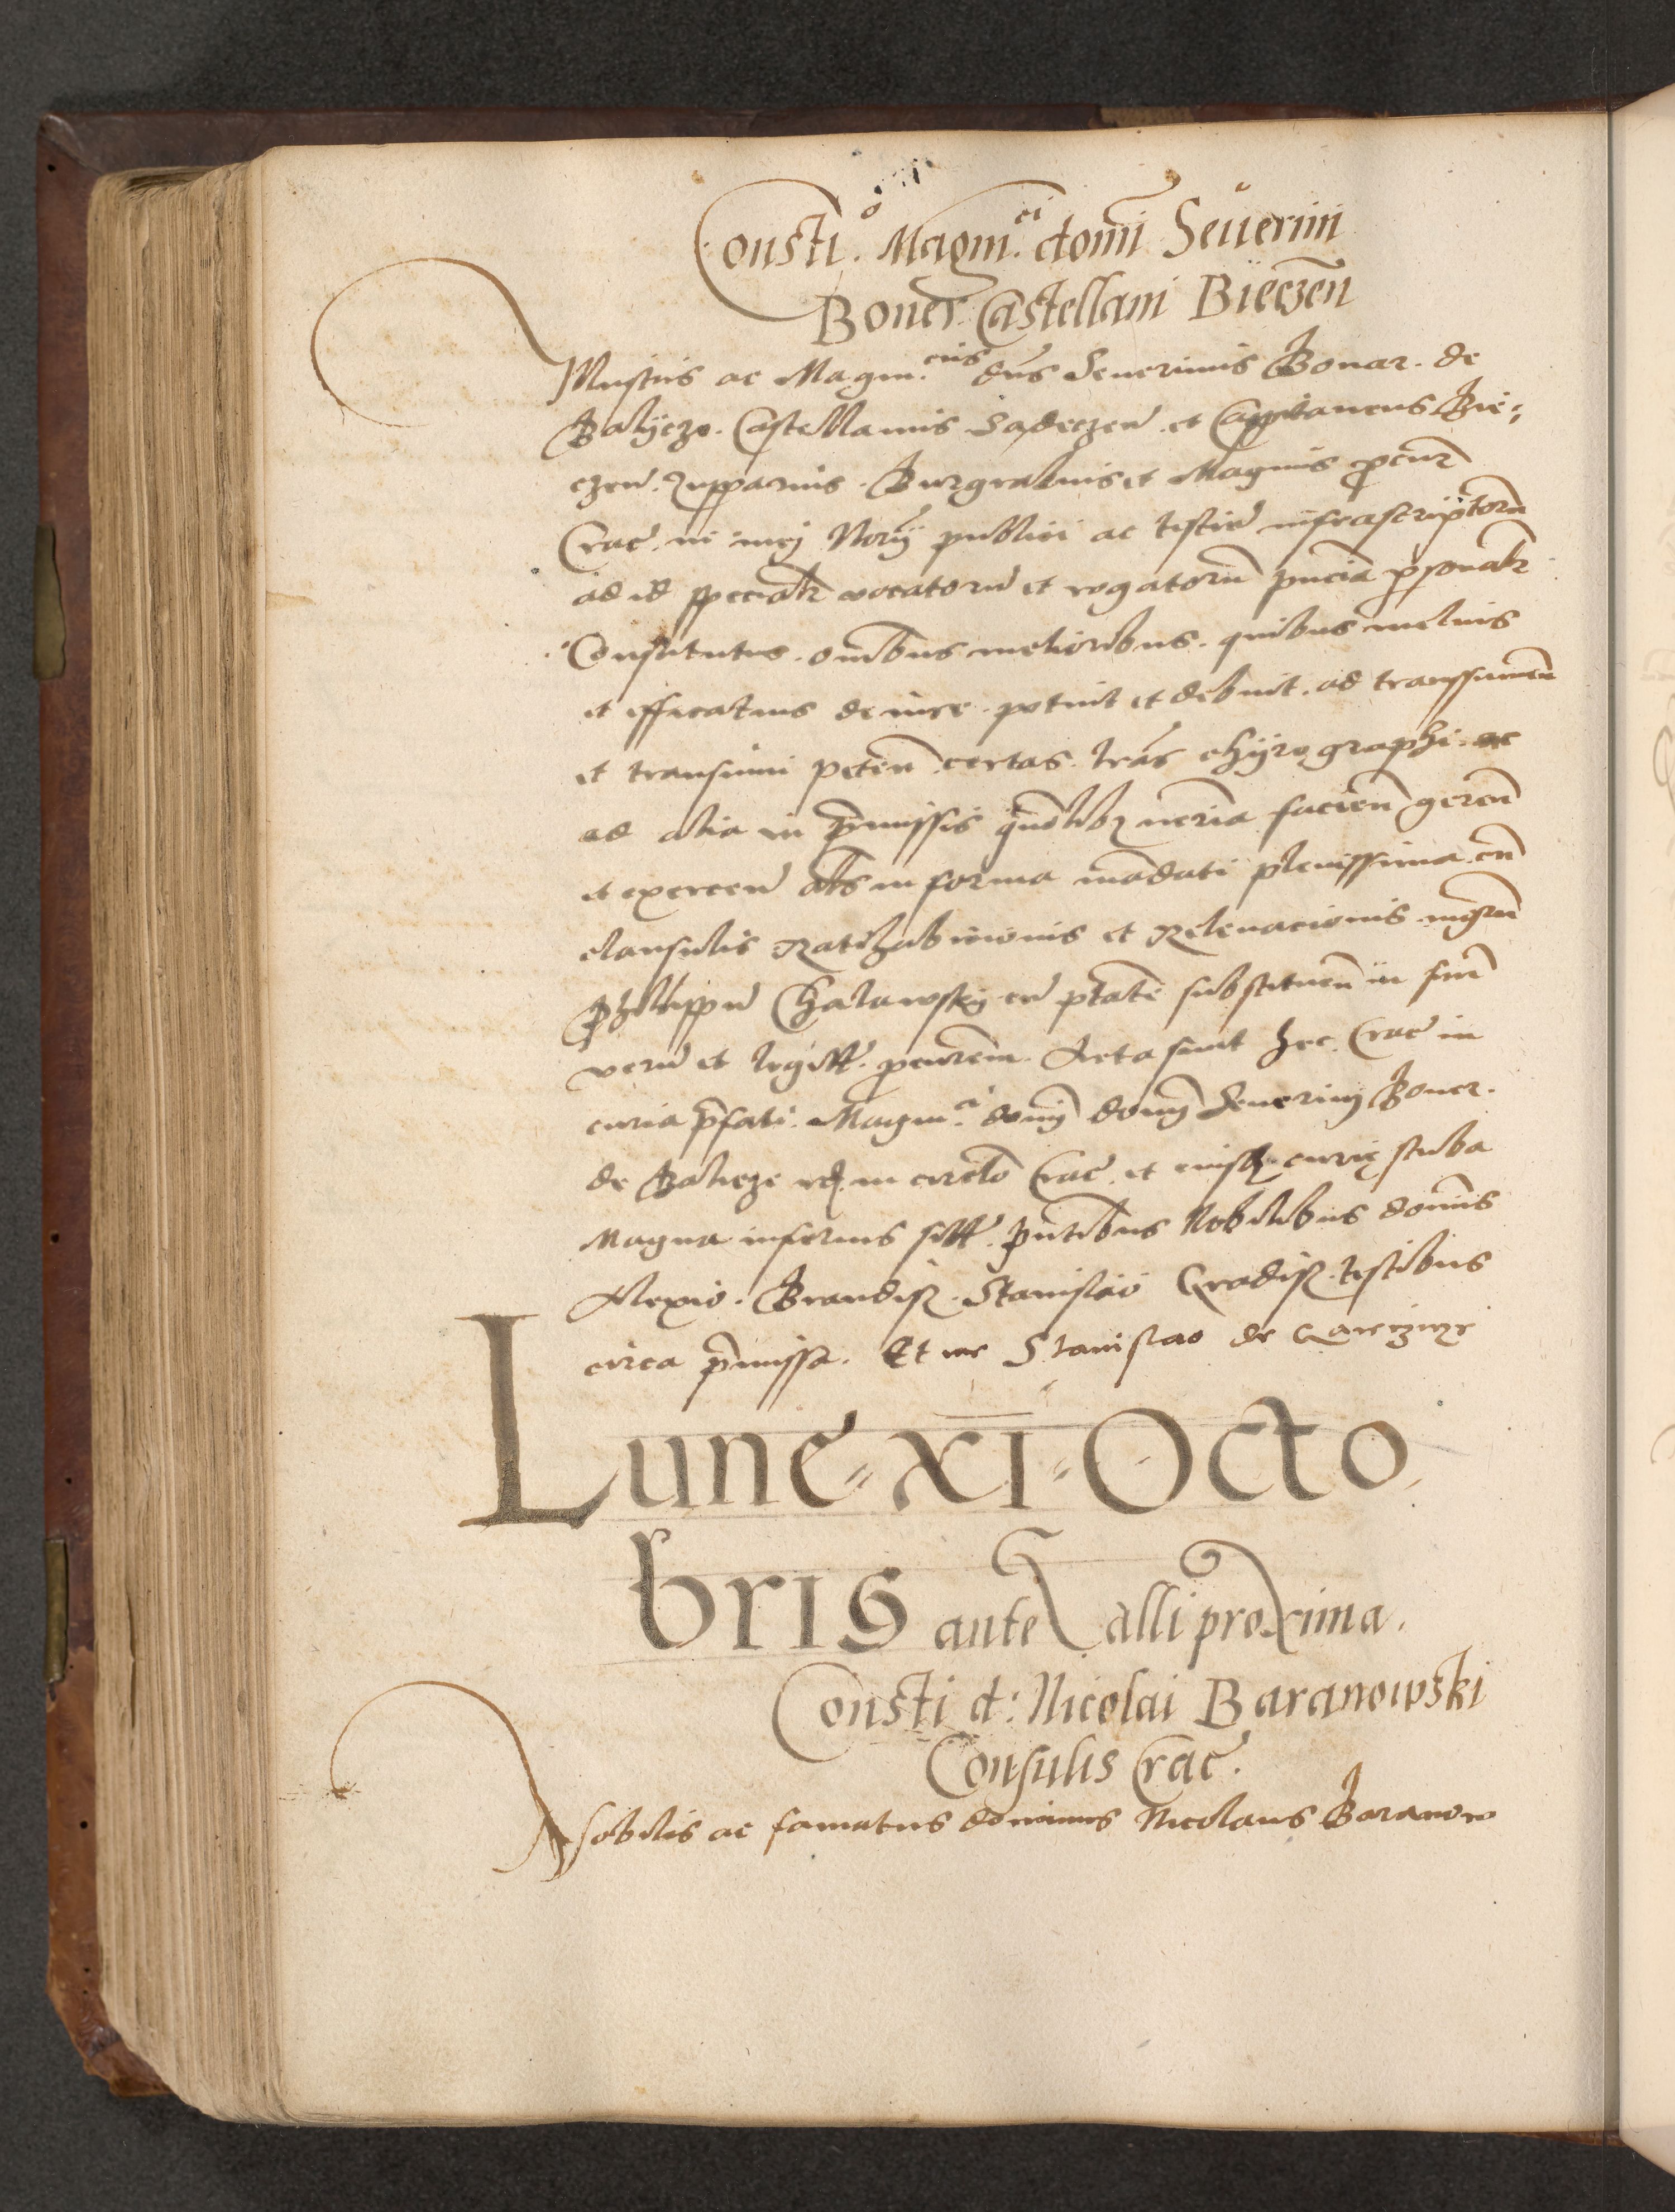 Consti.o Magni.ci domi Seuerini
Boner Castellani Bieczen̄
Illustris ac Magni.cus dns̄ Seuerinus Bonar. de
Balijcze. Castellanus Sądeczen̄. et Capitaneus Bie:
czen̄. Zupparius. Burgrabius et Magnus ꝓcur̄
Crac̄. in mej Norij̄ publici ac testiū infrascriptorū
ad id specialr̄ vocatorū et rogatorū pn̄cia ꝑsonalr̄
Constitutus. om̄ibus melioribus. quibus melius
et efficatius de iure. potuit et debuit. ad transsumen̄
et transumi peten̄ certas. lrās chijrographi. ac
ad alia in p̄missis quōlibꝫ ncrīa facien̄ geren̄
et exercen̄ als̄ in forma mādati plenissima. cū
clausulis Ratihabicionis et Releuacionis. mgrm̄
Philippū Chalawskij cū ptāte substituen̄ in suū
verū et legitt̄. ꝓcurem̄. Acta sunt hec. Crac̄ in
curia p̄fati. Magni.ci domj̄ domj̄ Seuerinj Boner.
de Balicze in circlo Crac̄. et eiusd curię stuba
Magna inferius sitt̄. pn̄tibus Nobilibus domīs
Alexio. Brandis. Stanislao Gradis. testibus
circa p̄missa. Et me Stanislao de
Lune. XI. Octo
bris ante Galli proxima.
Consti d: Nicolai Baranowski
Consulis Crac̄.
Nobilis ac famatus dominus Nicolaus Baranow